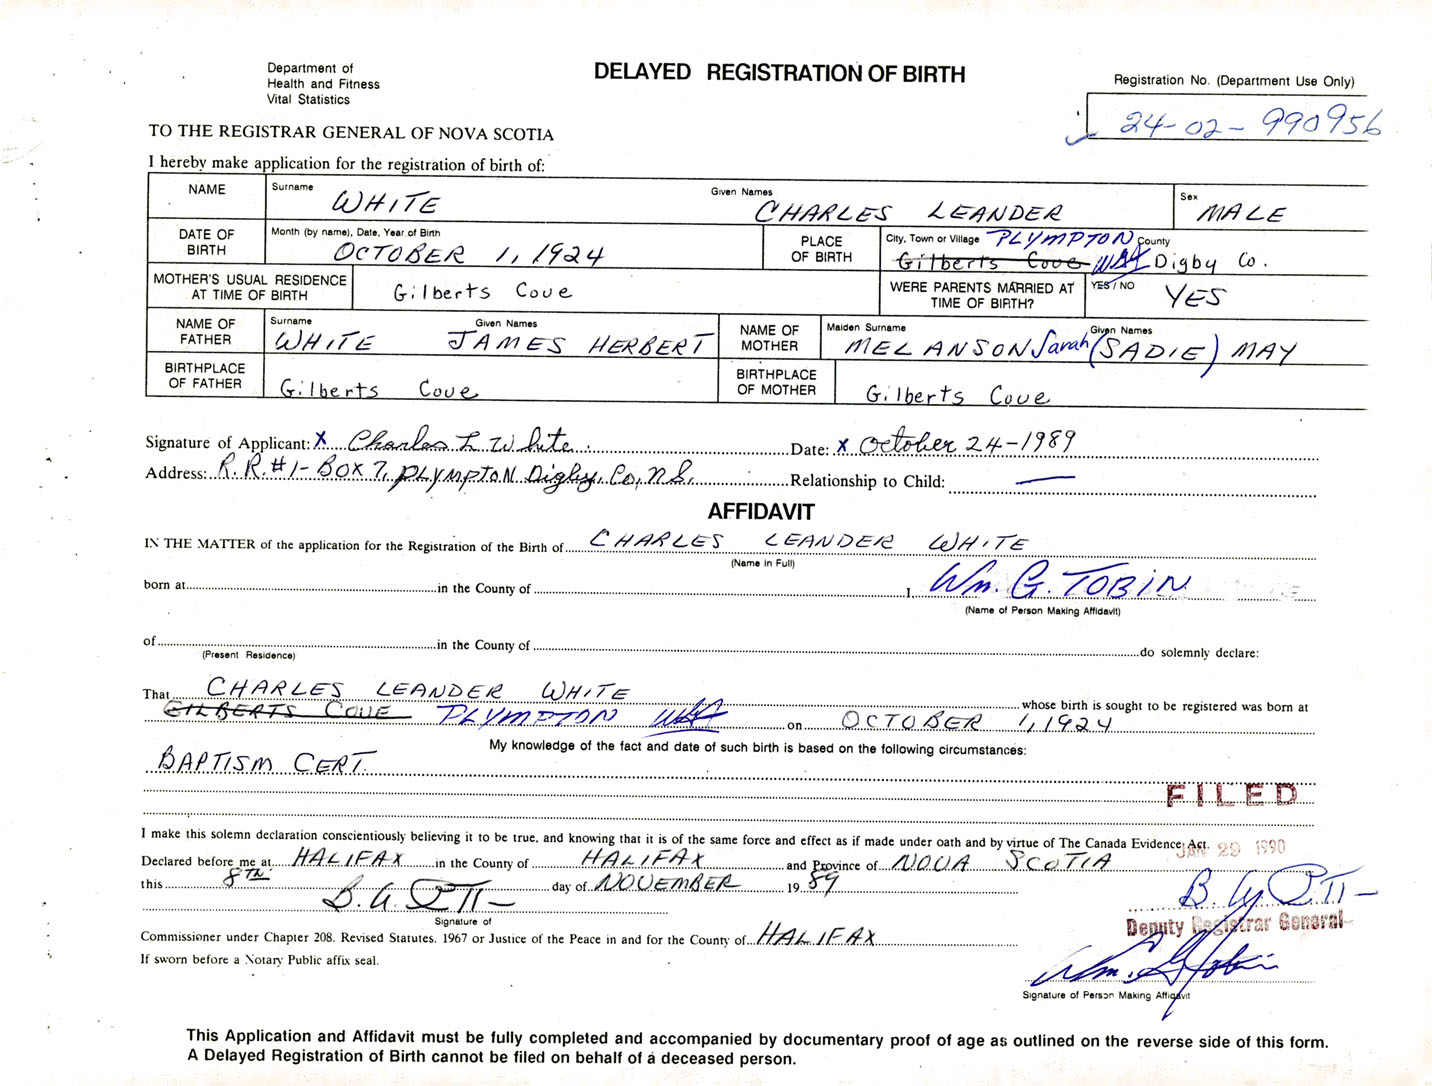 Department of
Health and Fitness
Vital Statistics
DELAYED REGISTRATION OF BIRTH
Registration No. (Department Use Only)
24-02-990956
TO THE REGISTRAR GENERAL OF NOVA SCOTIA
I hereby make application for the registration of birth of:
NAME Surname WHITE Given Names CHARLES LEANDER Sex MALE
DATE OF BIRTH Month (by name), Date, Year of Birth OCTOBER 1, 1924 PLACE OF BIRTH City, Town or Village PLYMPTON County
Gilberts Cove Digby Co.
MOTHER'S USUAL RESIDENCE AT TIME OF BIRTH Gilberts Cove WERE PARENTS MARRIED AT TIME OF BIRTH? YES / NO YES
NAME OF FATHER Surname WHITE Given Names JAMES HERBERT NAME OF MOTHER Maiden Surname MELANSON Given Names Sarah (SADIE) MAY
BIRTHPLACE OF FATHER Gilberts Cove BIRTHPLACE OF MOTHER Gilberts Cove
Signature of Applicant: X Charles L White Date: X October 24-1989
Address: R.R.#1-BOX 7, PLYMPTON Digby, Co, N.S. Relationship to Child: —
AFFIDAVIT
IN THE MATTER of the application for the Registration of the Birth of CHARLES LEANDER WHITE
(Name in Full)
born at in the County of I, Wm. G. TOBIN
(Name of Person Making Affidavit)
of in the County of do solemnly declare:
(Present Residence)
That CHARLES LEANDER WHITE whose birth is sought to be registered was born at
GILBERTS COVE PLYMPTON on OCTOBER 1, 1924
My knowledge of the fact and date of such birth is based on the following circumstances:
BAPTISM CERT.
FILED
I make this solemn declaration conscientiously believing it to be true, and knowing that it is of the same force and effect as if made under oath and by virtue of The Canada Evidence Act.
JAN 29 1990
Declared before me at HALIFAX in the County of HALIFAX and Province of NOVA SCOTIA
this 8TH day of NOVEMBER 19 89
Signature of
Deputy Registrar General
Commissioner under Chapter 208. Revised Statutes. 1967 or Justice of the Peace in and for the County of HALIFAX
If sworn before a Notary Public affix seal.
Wm. G Tobin
Signature of Person Making Affidavit
This Application and Affidavit must be fully completed and accompanied by documentary proof of age as outlined on the reverse side of this form.
A Delayed Registration of Birth cannot be filed on behalf of a deceased person.